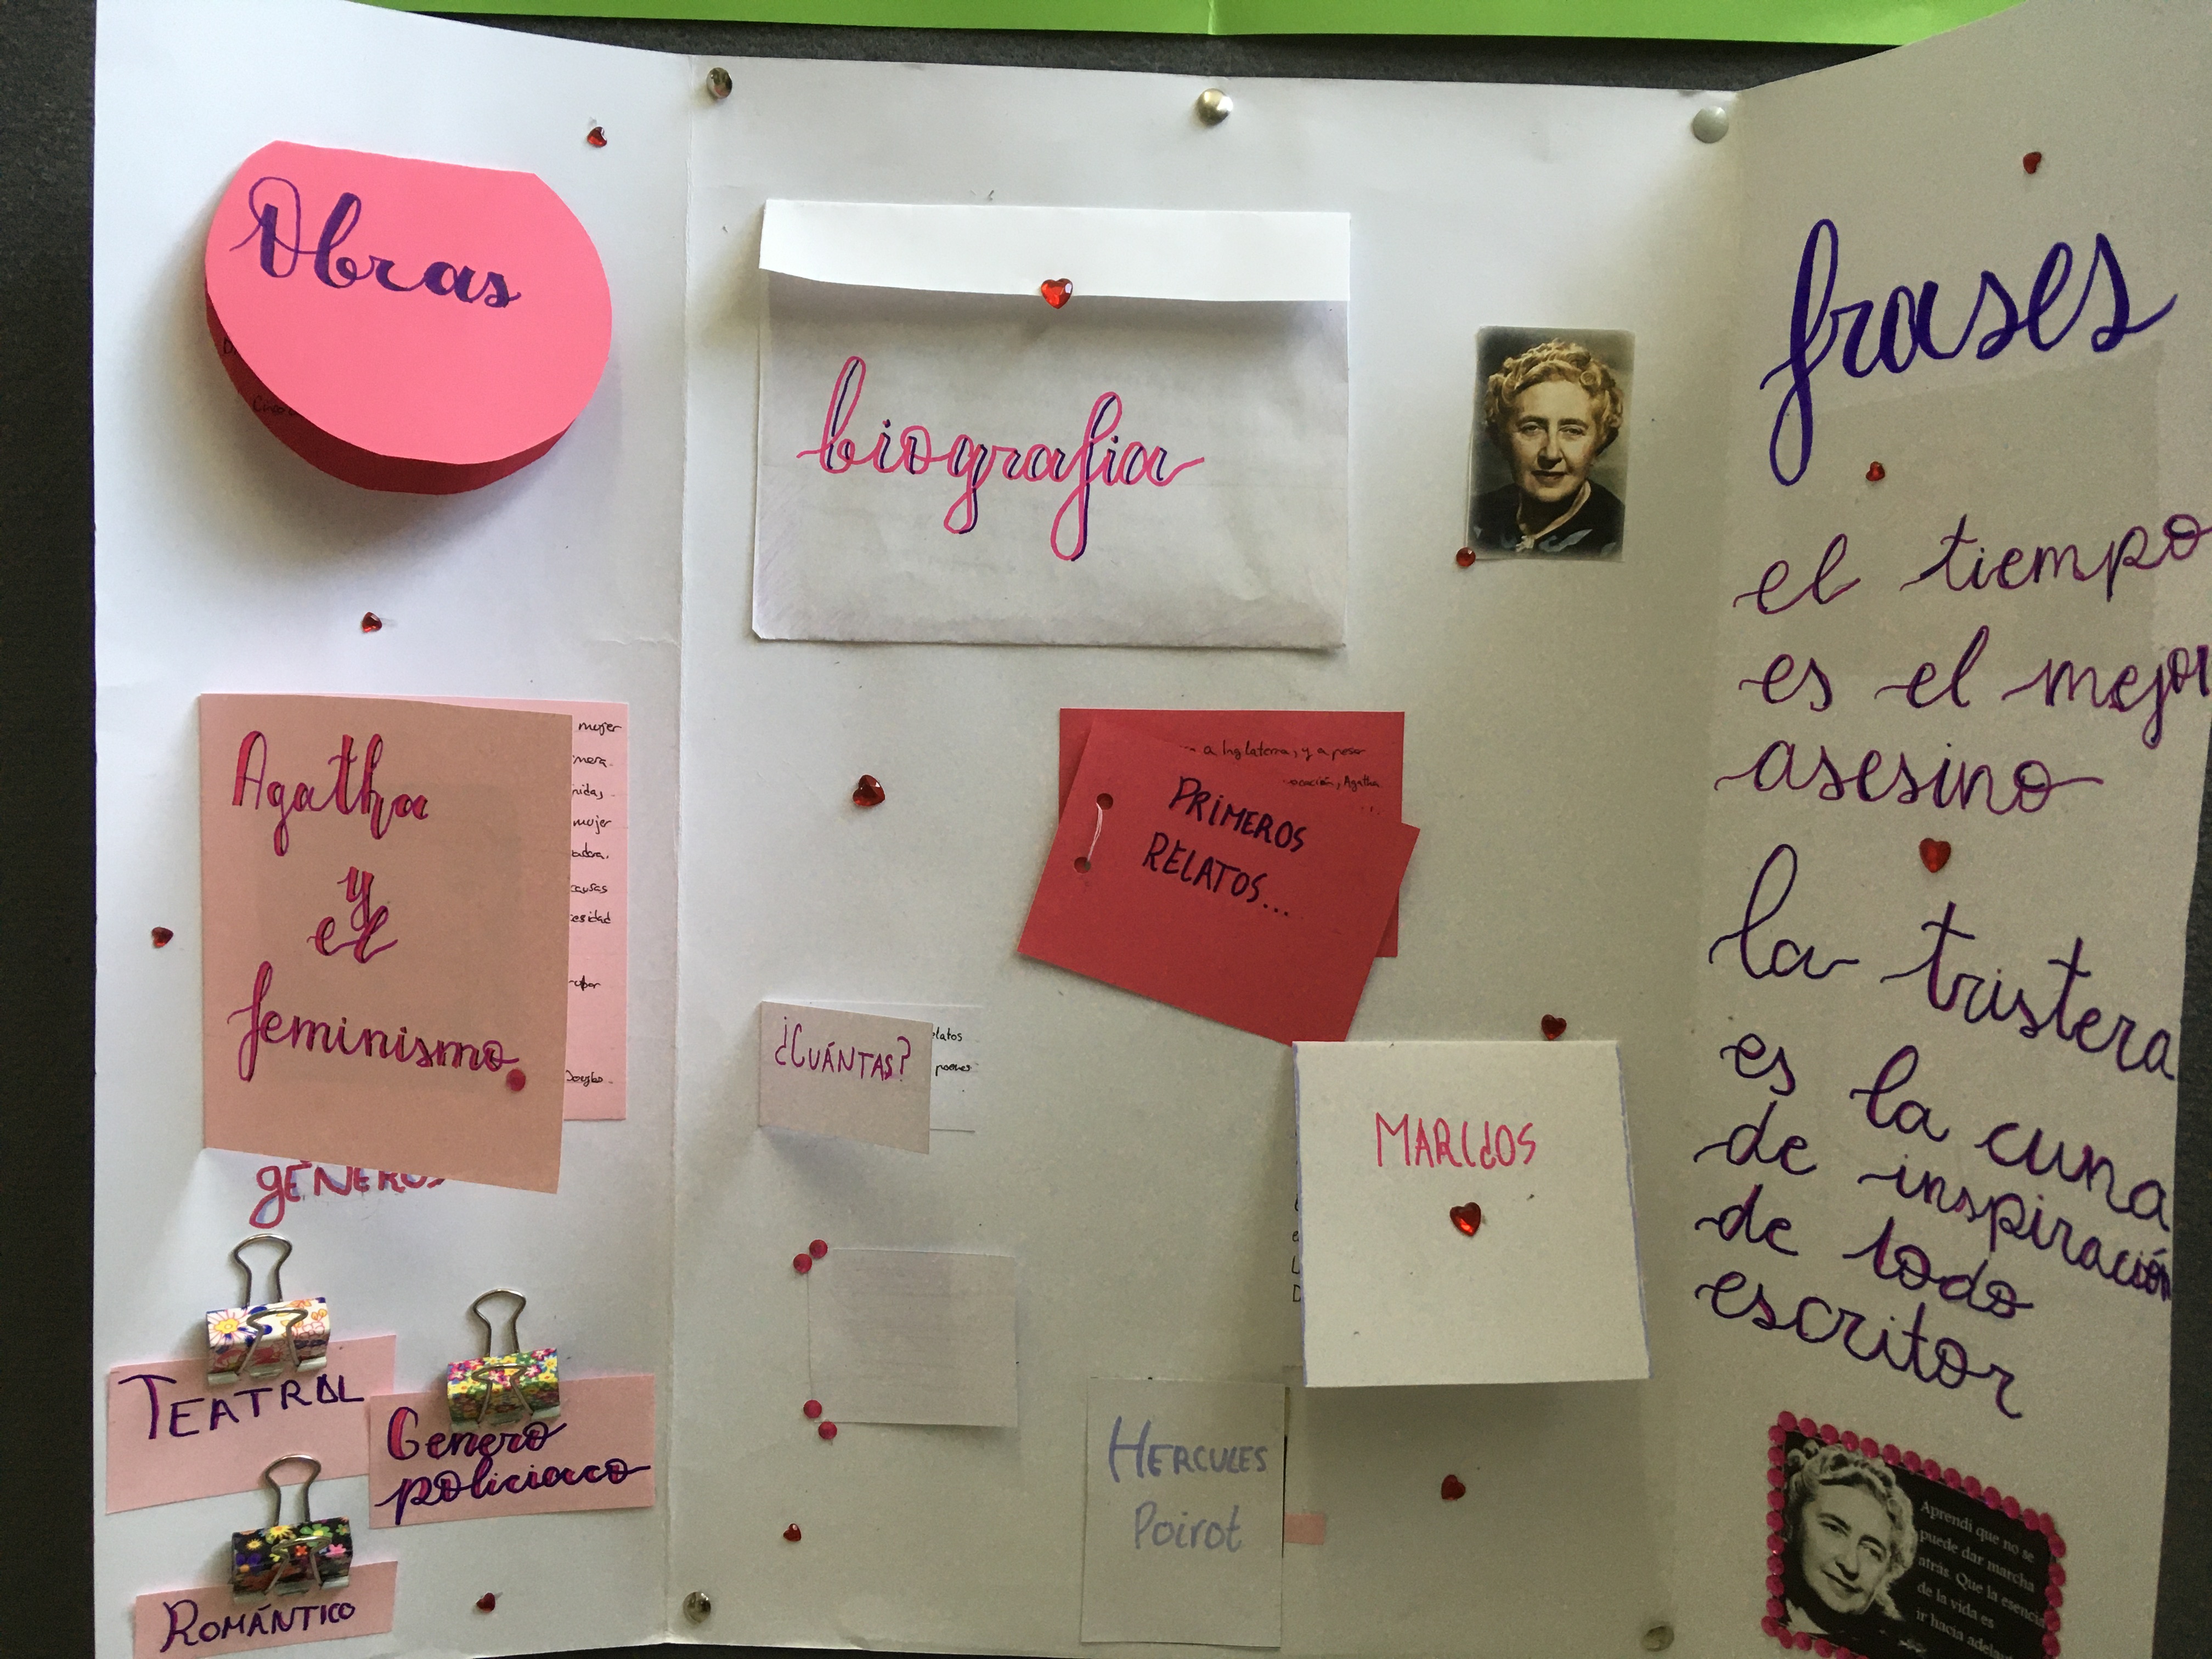 Obras
Agatha
y
el
feminismo.
mujer
mujer
causas
GÉNEROS
TEATRAL
Genero
policiaco
ROMÁNTICO
biografia
a Inglaterra, y a pesar
Agatha
PRIMEROS
RELATOS...
¿CUÁNTAS?
MARIdOS
HERCULES
Poirot
frases
el tiempo
es el mejor
asesino
la tristeza
es la cuna
de inspiración
de todo
escritor
Aprendí que no se
puede dar marcha
atrás. Que la esencia
de la vida es
ir hacia adelante